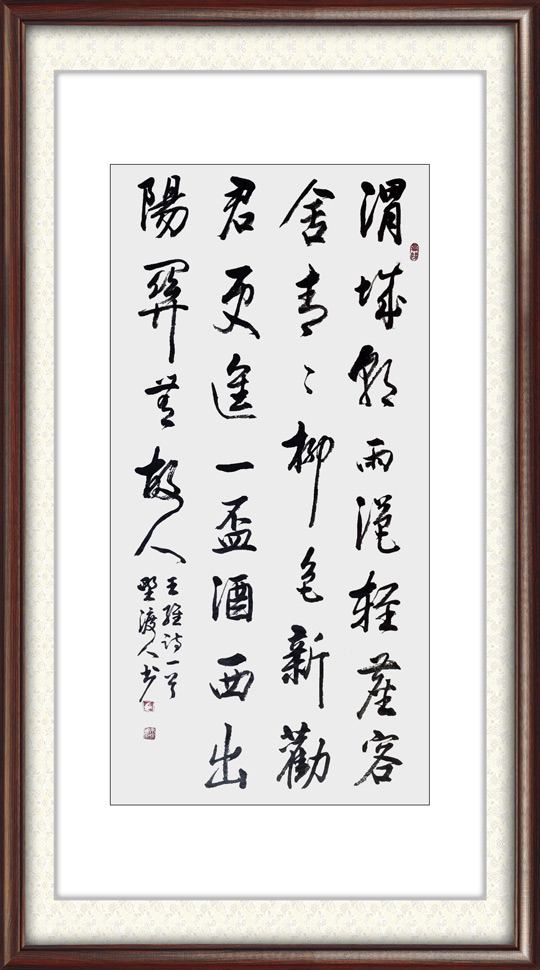 渭城朝雨浥輕塵客
舍青〻柳色新勸
君更進一盃酒西出
陽關無故人
王維詩一首
野渡人书